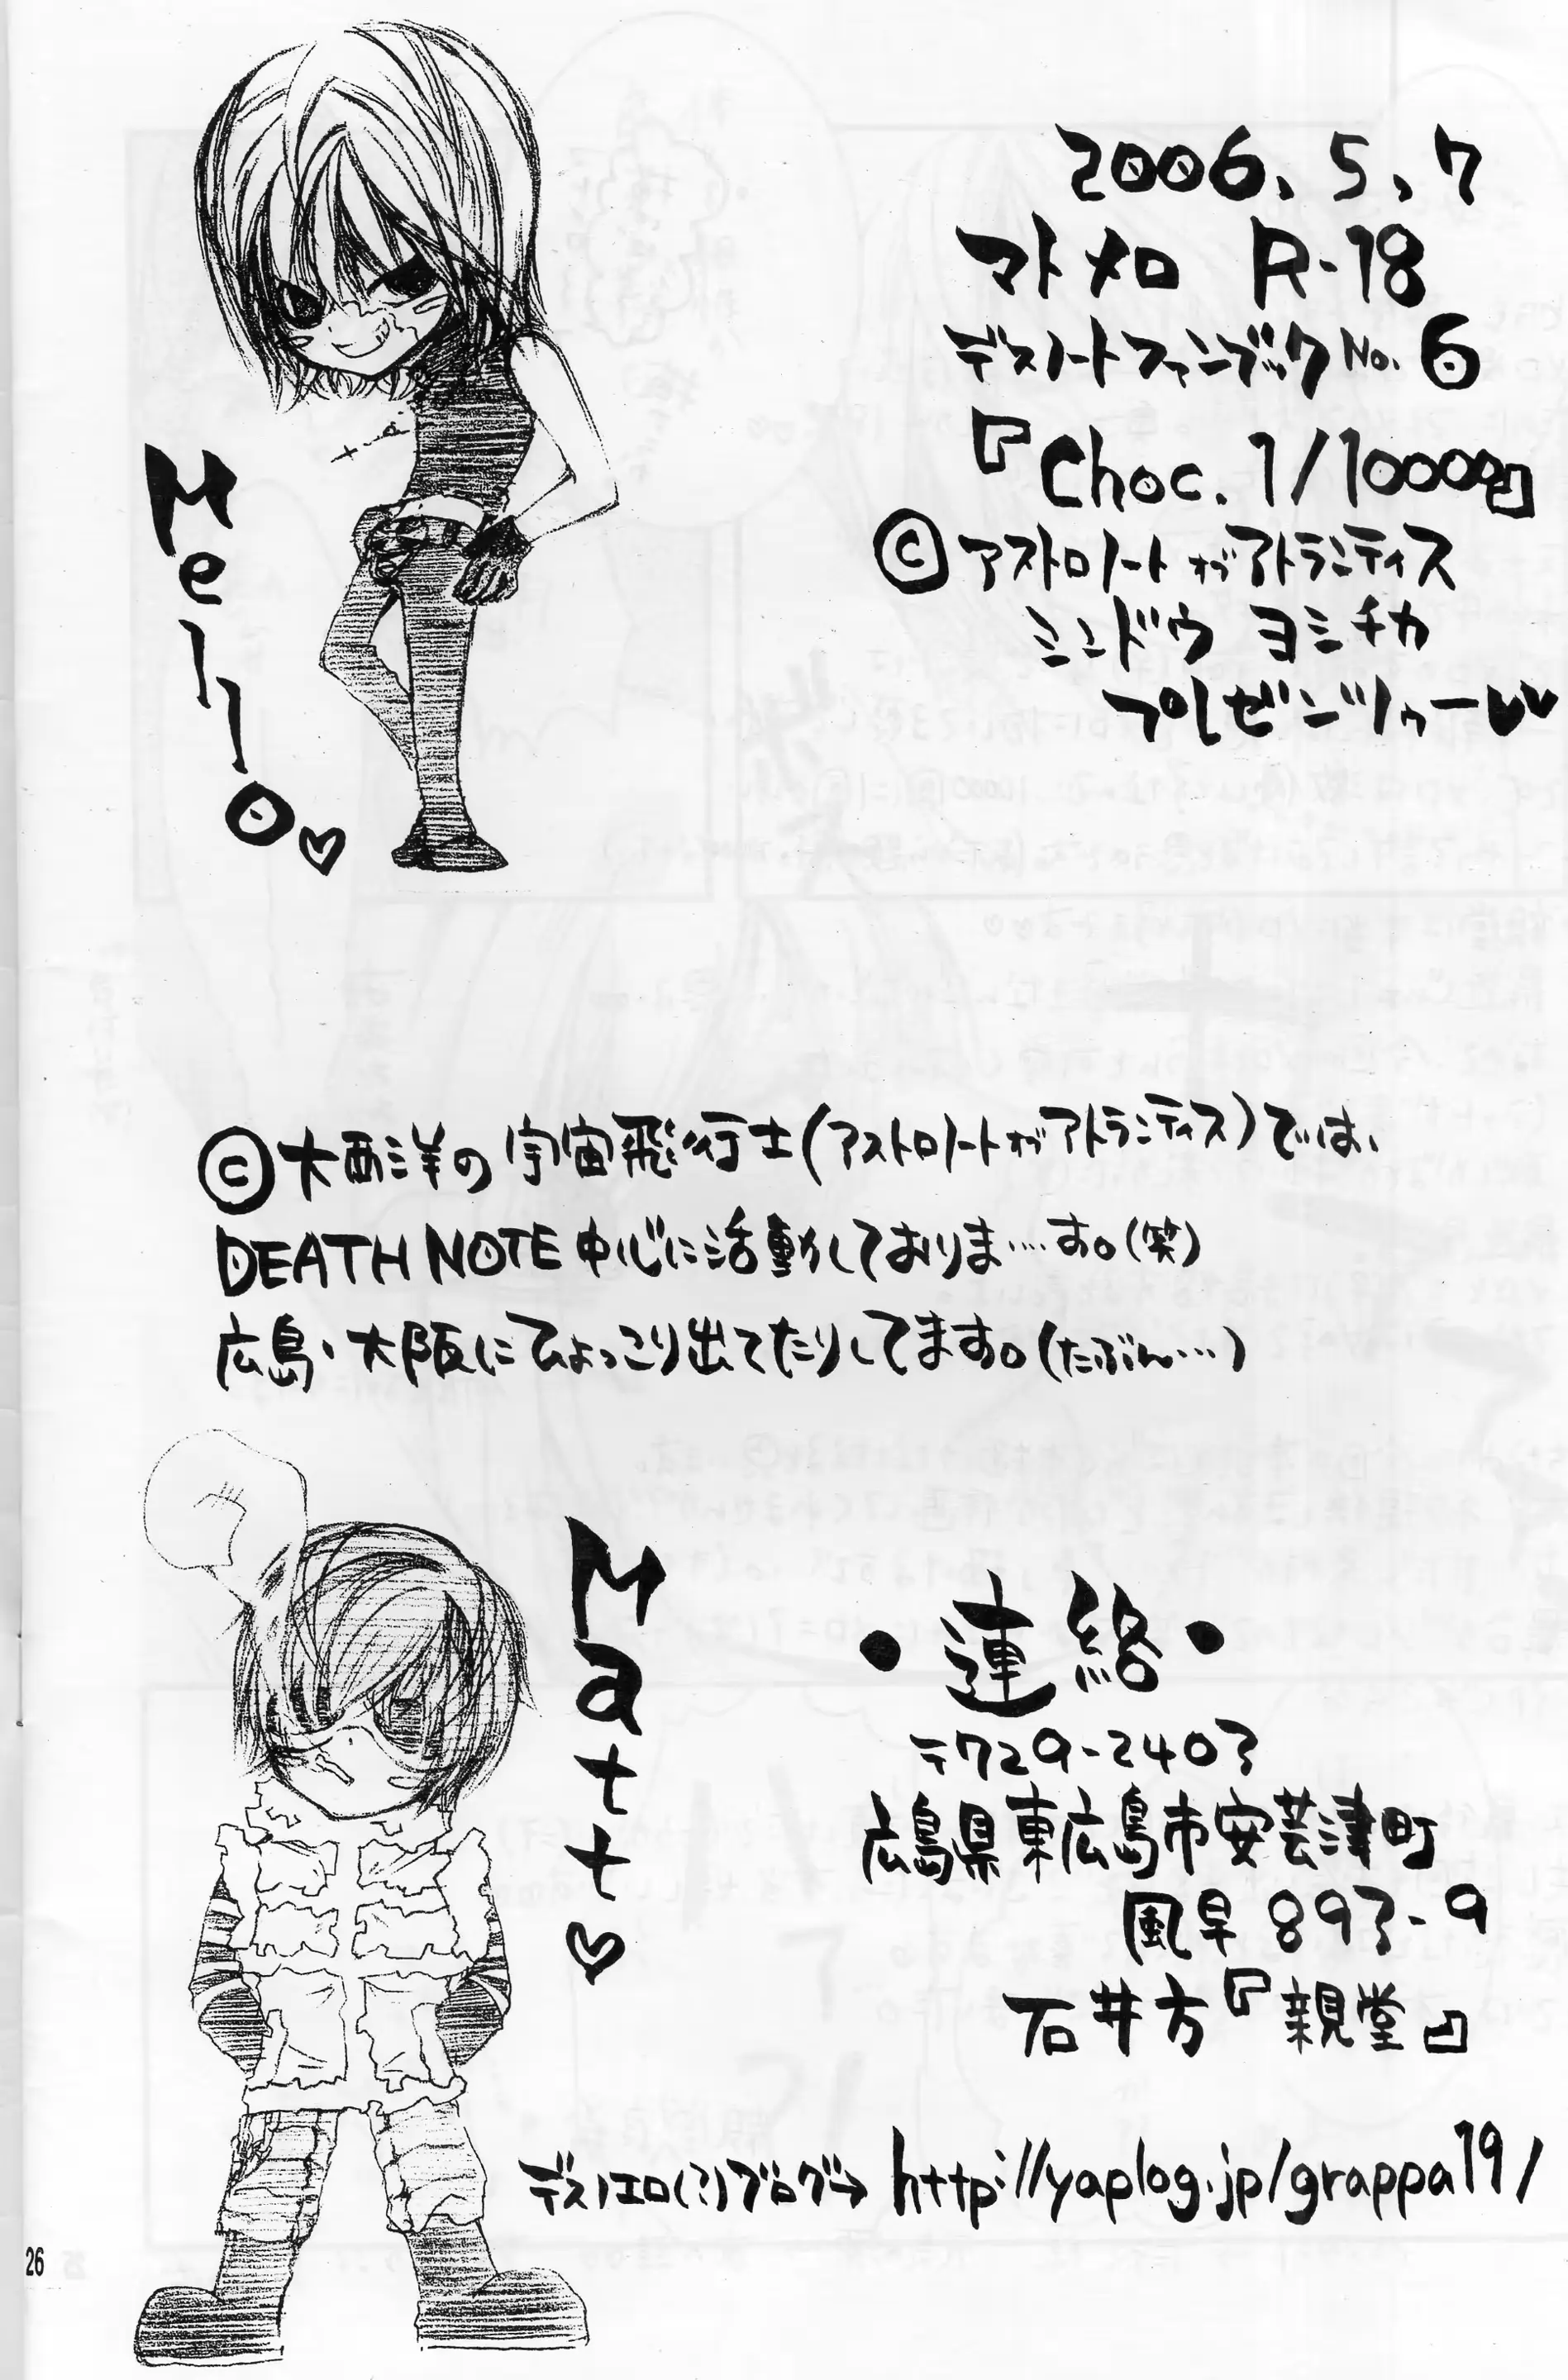 2006、5、7
マトメロ R-18
デスノートファンブック No.6
『Choc. 1/1000』
Ⓒアストロノート オヴ アトランティス
シンドウ ヨシチカ
プレゼンツゥールル♥
Mello♡
Ⓒ大西洋の宇宙飛行士(アストロノート オヴ アトランティス)では、
DEATH NOTE中心に活動しておりま……す。(笑)
広島・大阪にひょっこり出てたりしてます。(たぶん…)
Matt♡
・連絡・
〒729-2403
広島県東広島市安芸津町
風早 893-9
石井方『親堂』
デスノエロ(?)ブログ→ http://yaplog.jp/grappa19/
26